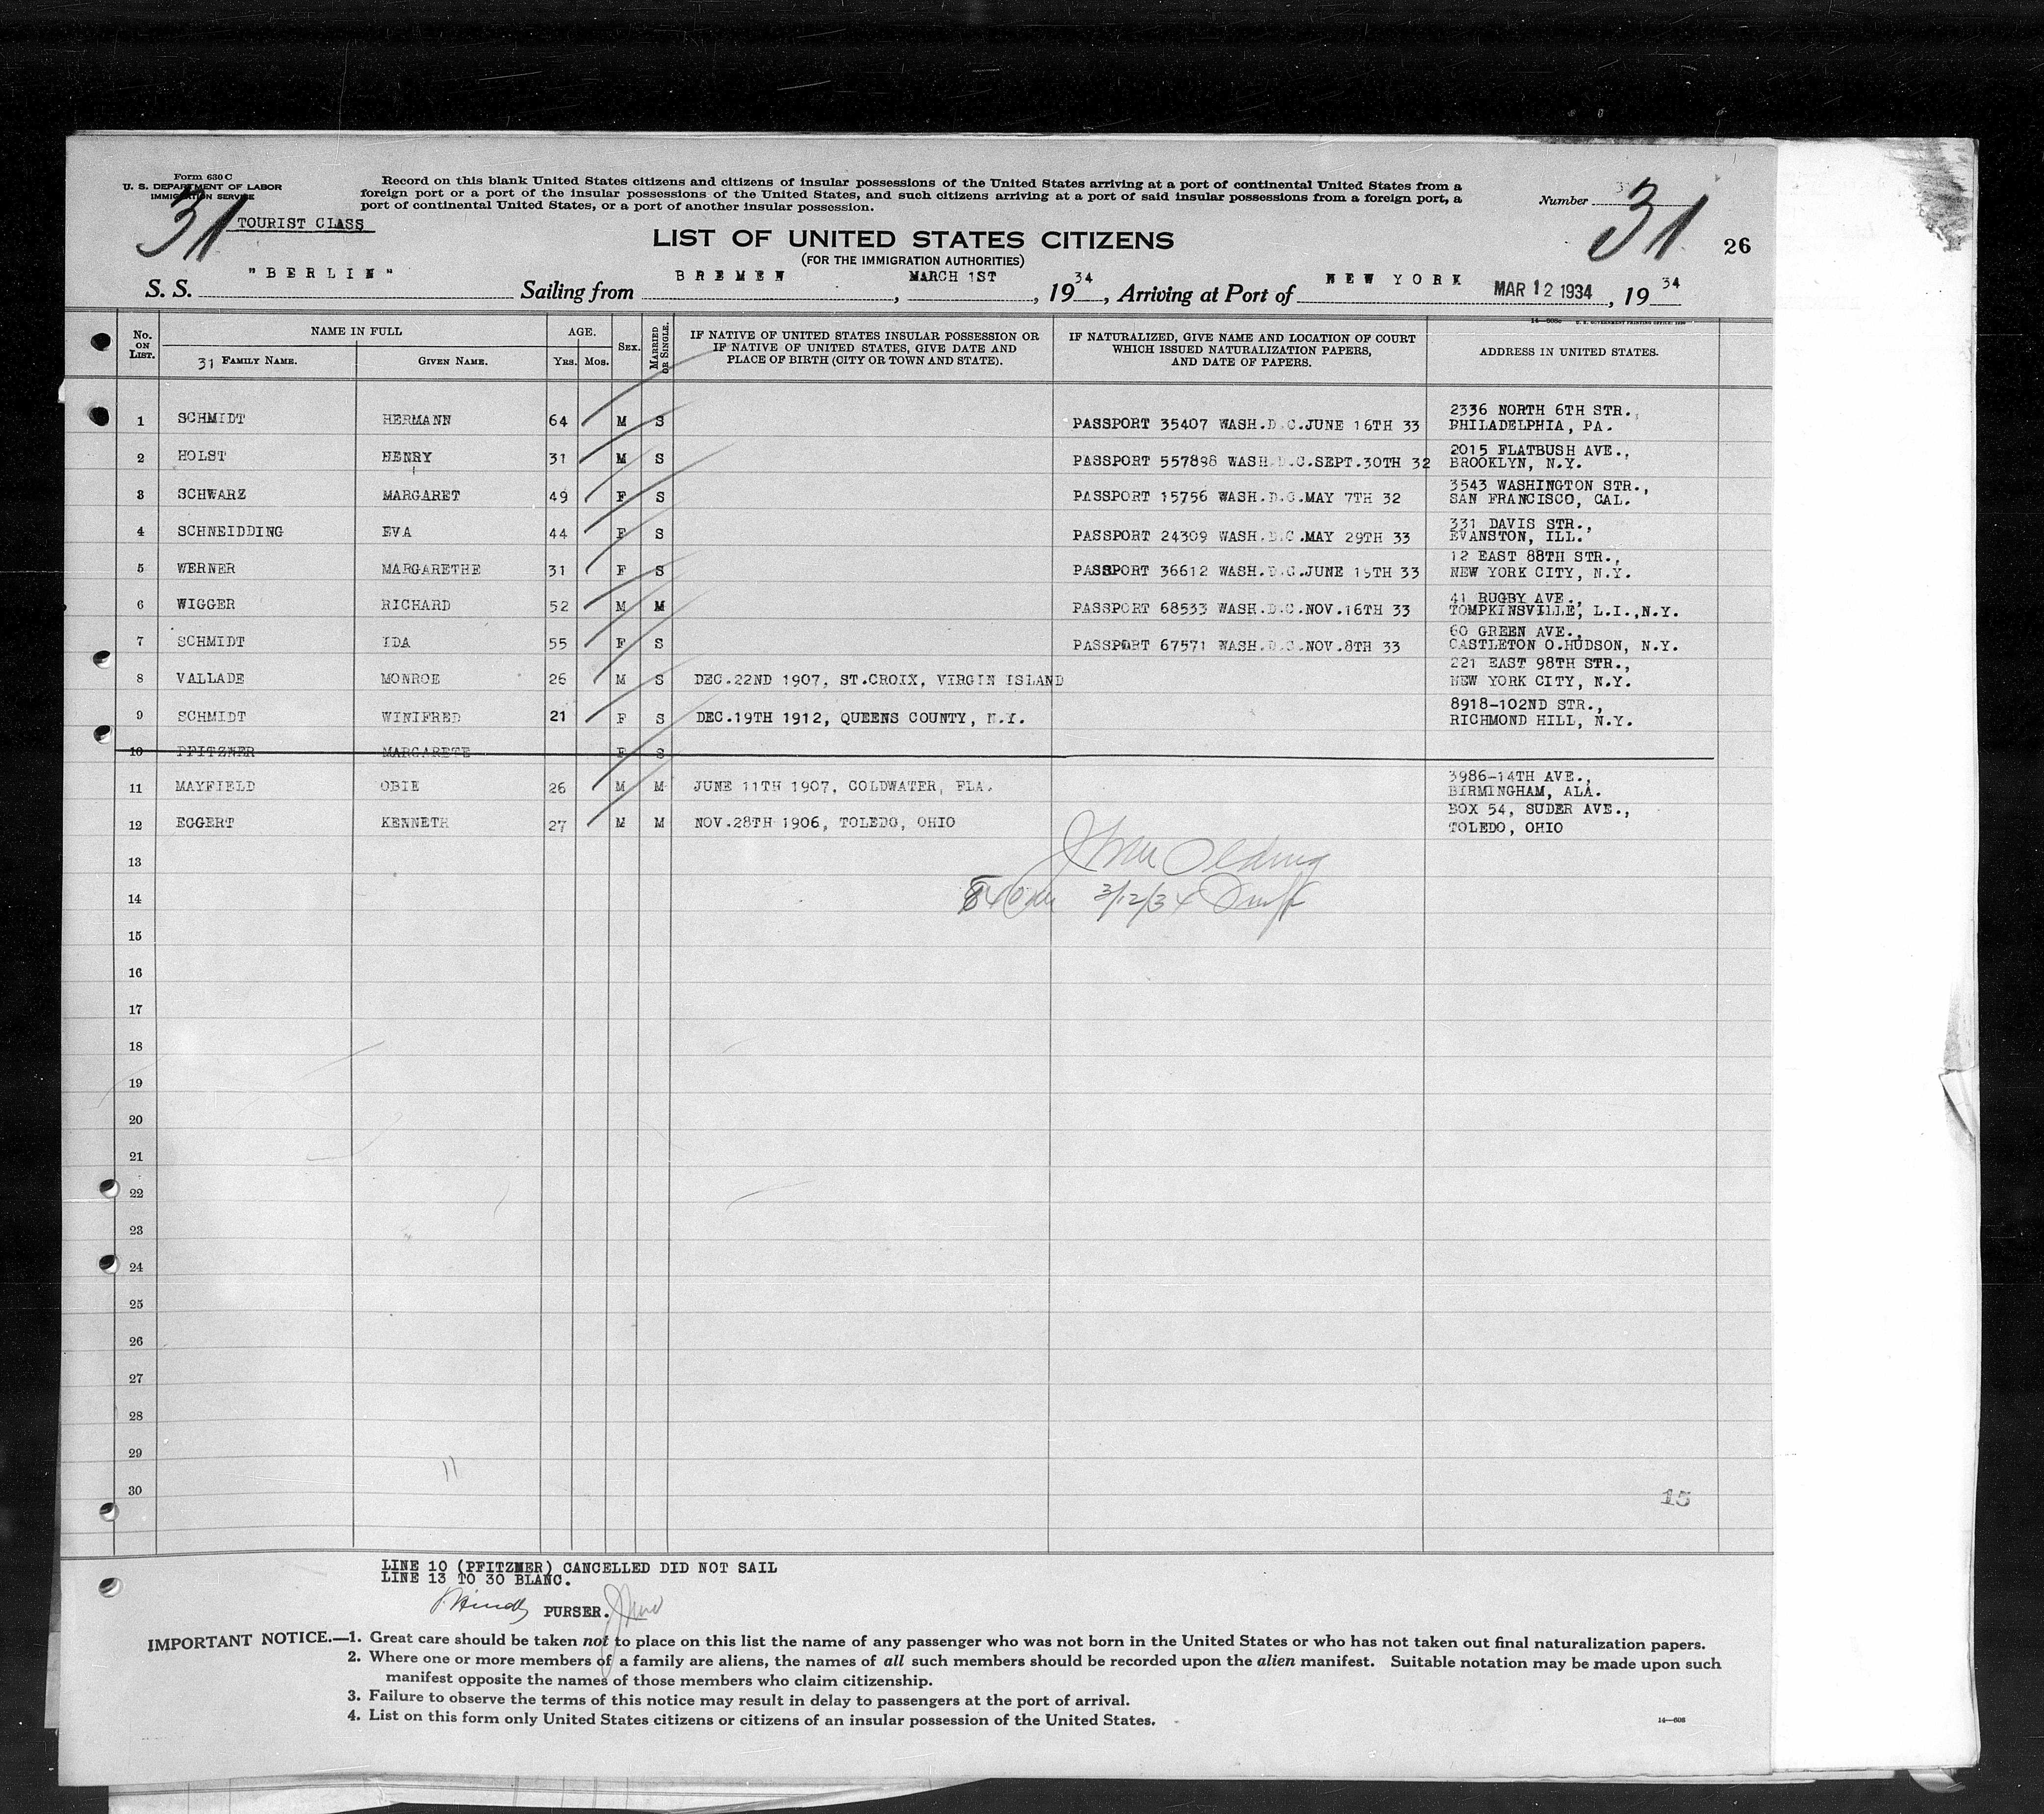 Form 630 C
U. S. DEPARTMENT OF LABOR
IMMIGRATION SERVICE
31
TOURIST CLASS
Record on this blank United States citizens and citizens of insular possessions of the United States arriving at a port of continental United States from a
foreign port or a port of the insular possessions of the United States, and such citizens arriving at a port of said insular possessions from a foreign port, a
port of continental United States, or a port of another insular possession.
Number 31
26
LIST OF UNITED STATES CITIZENS
(FOR THE IMMIGRATION AUTHORITIES)
S. S. "BERLIN" Sailing from BREMEN, MARCH 1ST, 1934, Arriving at Port of NEW YORK MAR 12 1934, 1934
No. ON LIST. NAME IN FULL 31 FAMILY NAME. GIVEN NAME. AGE. Yrs. Mos. SEX. MARRIED OR SINGLE. IF NATIVE OF UNITED STATES INSULAR POSSESSION OR IF NATIVE OF UNITED STATES, GIVE DATE AND PLACE OF BIRTH (CITY OR TOWN AND STATE). IF NATURALIZED, GIVE NAME AND LOCATION OF COURT WHICH ISSUED NATURALIZATION PAPERS, AND DATE OF PAPERS. ADDRESS IN UNITED STATES.
1 SCHMIDT HERMANN 64 M S PASSPORT 35407 WASH.D.C.JUNE 16TH 33 2336 NORTH 6TH STR., PHILADELPHIA, PA.
2 HOLST HENRY 31 M S PASSPORT 557898 WASH.D.C.SEPT.30TH 32 2015 FLATBUSH AVE., BROOKLYN, N.Y.
3 SCHWARZ MARGARET 49 F S PASSPORT 15756 WASH.D.C.MAY 7TH 32 3543 WASHINGTON STR., SAN FRANCISCO, CAL.
4 SCHNEIDDING EVA 44 F S PASSPORT 24309 WASH.D.C.MAY 29TH 33 331 DAVIS STR., EVANSTON, ILL.
5 WERNER MARGARETHE 31 F S PASSPORT 36612 WASH.D.C.JUNE 19TH 33 12 EAST 88TH STR., NEW YORK CITY, N.Y.
6 WIGGER RICHARD 52 M M PASSPORT 68533 WASH.D.C.NOV.16TH 33 41 RUGBY AVE., TOMPKINSVILLE, L.I.,N.Y.
7 SCHMIDT IDA 55 F S PASSPORT 67571 WASH.D.C.NOV.8TH 33 60 GREEN AVE., CASTLETON O.HUDSON, N.Y.
8 VALLADE MONROE 26 M S DEC.22ND 1907, ST.CROIX, VIRGIN ISLAND 221 EAST 98TH STR., NEW YORK CITY, N.Y.
9 SCHMIDT WINIFRED 21 F S DEC.19TH 1912, QUEENS COUNTY, N.Y. 8918-102ND STR., RICHMOND HILL, N.Y.
10 PFITZNER MARGARETE F S
11 MAYFIELD OBIE 26 M M JUNE 11TH 1907, COLDWATER, FLA. 3986-14TH AVE., BIRMINGHAM, ALA.
12 EGGERT KENNETH 27 M M NOV.28TH 1906, TOLEDO, OHIO BOX 54, SUDER AVE., TOLEDO, OHIO
13
14 3/12/34
15
16
17
18
19
20
21
22
23
24
25
26
27
28
29
11
30
15
LINE 10 (PFITZNER) CANCELLED DID NOT SAIL
LINE 13 TO 30 BLANC.
PURSER.
IMPORTANT NOTICE.—1. Great care should be taken not to place on this list the name of any passenger who was not born in the United States or who has not taken out final naturalization papers.
2. Where one or more members of a family are aliens, the names of all such members should be recorded upon the alien manifest. Suitable notation may be made upon such
manifest opposite the names of those members who claim citizenship.
3. Failure to observe the terms of this notice may result in delay to passengers at the port of arrival.
4. List on this form only United States citizens or citizens of an insular possession of the United States.
14—608